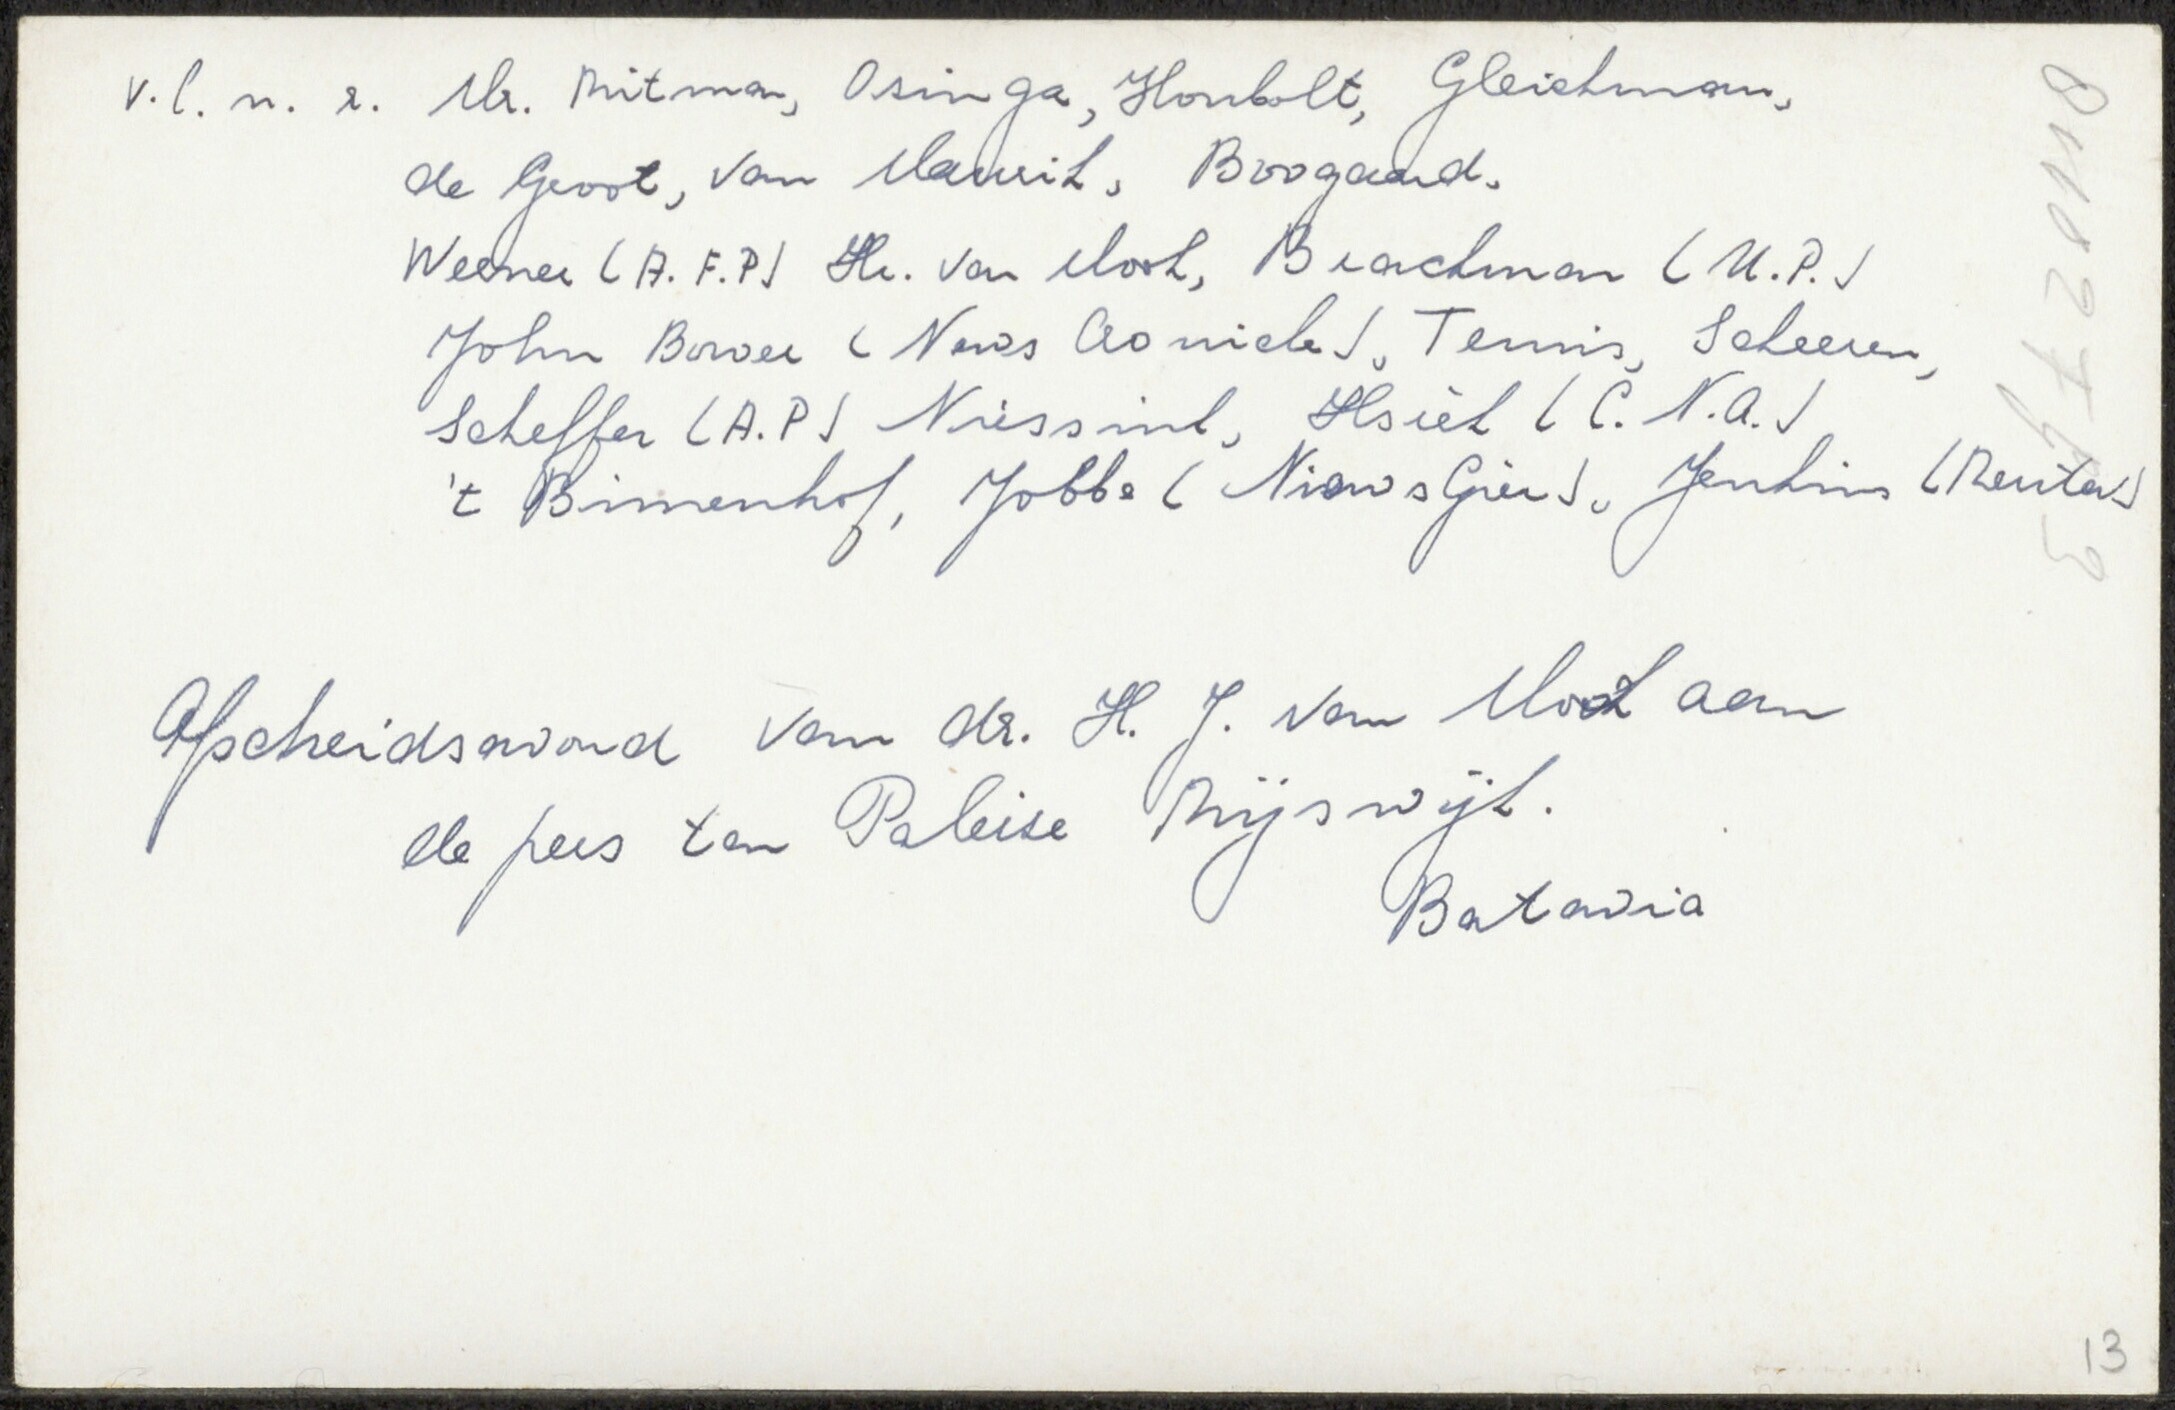 v. l. n. r. Mr. Ritman, Osinga, Houbolt, Gleichman,
de Groot, van Maurik, Boogaard,
Werner (A.F.P) Hr. van Mook, Brachman (U.P.)
John Bower (News Cronicle), Tennis, Scheeren,
Scheffer (A.P) Niessink, Hsieh (C.N.A.)
't Binnenhof, Jobbe (NieuwsGier), Jenkins (Reuter)
Afscheidsavond van dr. H. J. van Mook aan
de pers ten Paleise Rijswijk.
Batavia
13